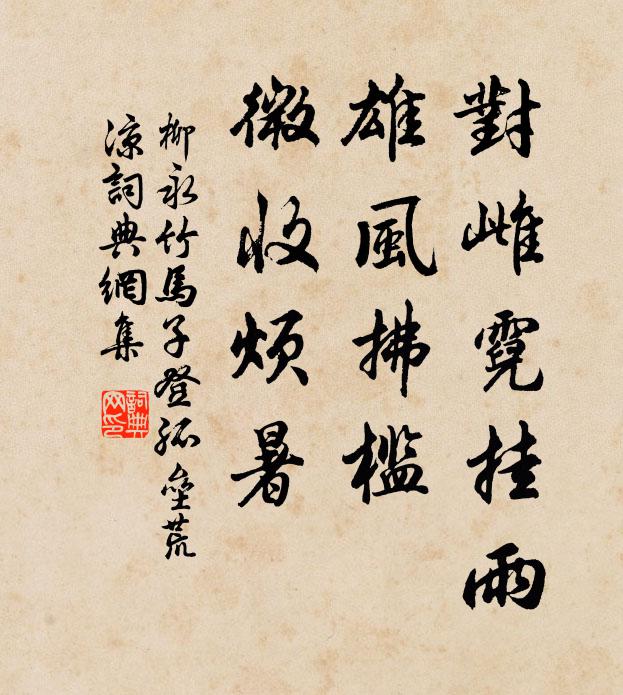 對雌霓挂雨
雄風拂檻
微收煩暑
柳永竹馬子登孤壘荒
涼詞典網集
詞典
网印